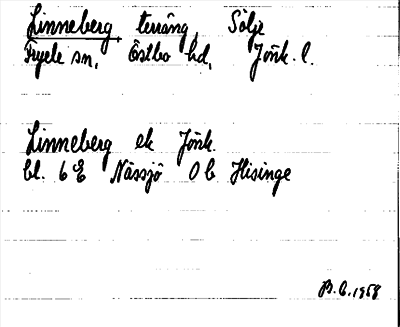 Linneberg, terräng Sölje
Fryele sn. Östbo hd. Jönk. l.
Linneberg ek Jönk.
bl. 6 E Nässjö 0 b Hisinge
B. G. 1958